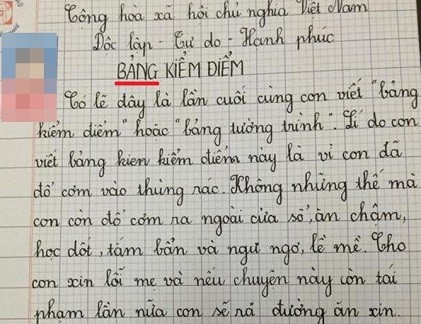 Cộng hoà xã hội chủ nghĩa Việt Nam
Độc lập - Tự do - Hạnh phúc
BẢNG KIỂM ĐIỂM
Có lẽ đây là lần cuối cùng con viết "bảng
kiểm điểm" hoặc "bảng tường trình". Lí do con
viết bảng kien kiểm điểm này là vì con đã
đổ cơm vào thùng rác. Không những thế mà
con còn đổ cơm ra ngoài cửa sổ, ăn chậm,
học dốt, tắm bẩn và ngu ngơ, lề mề. Cho
con xin lỗi mẹ và nếu chuyện này còn tái
phạm lần nữa con sẽ rả đường ăn xin.